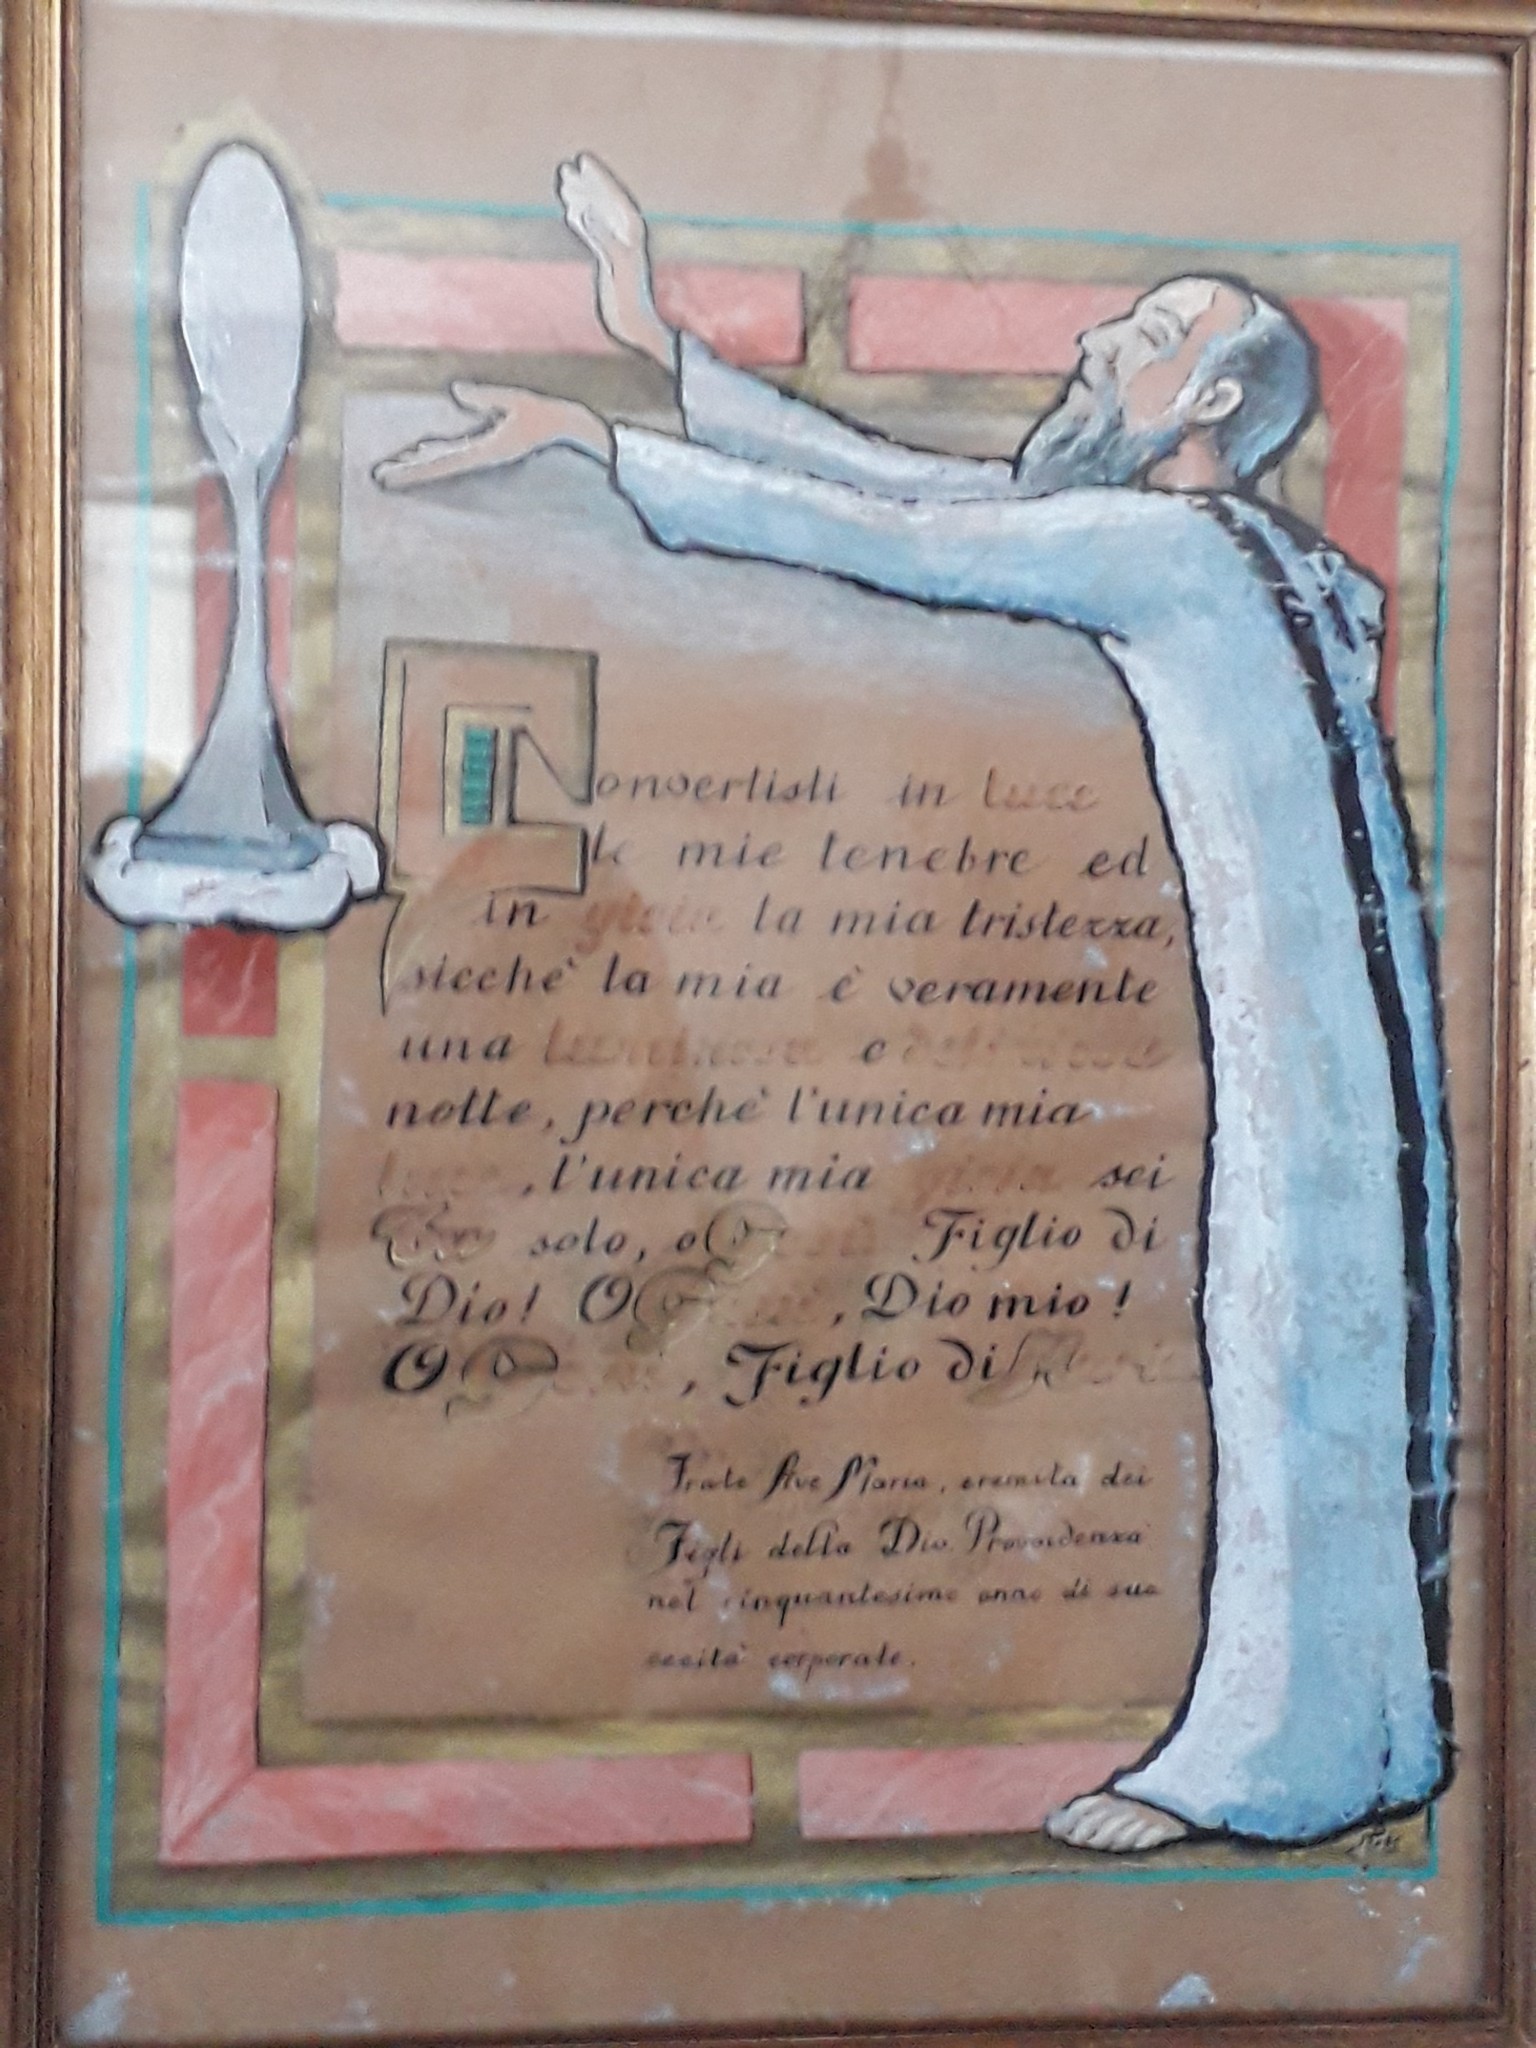 Convertisti in luce
le mie tenebre ed
in gioia la mia tristezza,
sicche' la mia è veramente
una luminosa e deliziosa
notte, perche' l'unica mia
luce, l'unica mia gioia sei
Tu solo, o Gesù Figlio di
Dio! O Gesù, Dio mio!
O Gesù, Figlio di Maria
Frate Ave Maria, eremita dei
Figli della Div. Provvidenza
nel cinquantesimo anno di sua
cecità corporale.